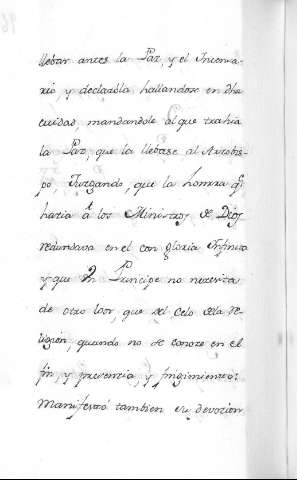 llebar antes la Paz, y el Incensa-
rio y declaróla hallandose en dha
ciudad, mandandole al que trahia
la Paz, que la llebase al Arzobis-
po Juzgando, que la honrra q̃
hazia â los Ministros de Dios
redundava en el con gloria Infinita
y que un Principe no necesita
de otro loor, que del Celo de la re-
ligion, quando no se conoze en el
fin, y, y fingimiento:
Manifestó tambien su devozion